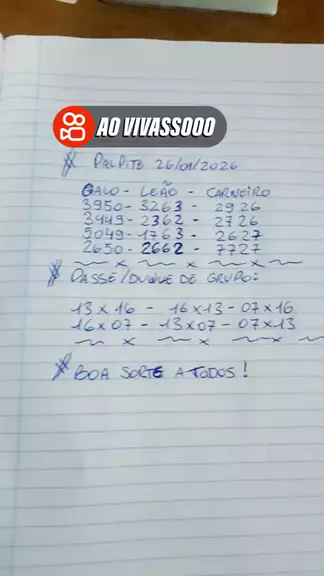 AO VIVASSOOO
* PALPITE 26/01/2026
GALO - LEÃO - CARNEIRO
3950 - 3263 - 2926
3449 - 2362 - 2726
5049 - 1763 - 2627
2650 - 2662 - 7727
* PASSE/DUQUE DE GRUPO:
13 x 16 - 16 x 13 - 07 x 16
16 x 07 - 13 x 07 - 07 x 13
* BOA SORTE A TODOS!